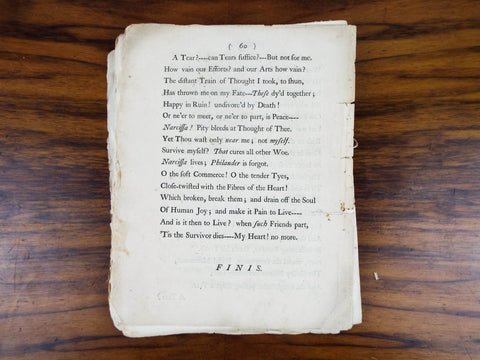 ( 60 )
A Tear?----can Tears suffice?--But not for me.
How vain our Efforts? and our Arts how vain?
The distant Train of Thought I took, to shun,
Has thrown me on my Fate--These dy'd together;
Happy in Ruin! undivorc'd by Death!
Or ne'er to meet, or ne'er to part, is Peace----
Narcissa! Pity bleeds at Thought of Thee.
Yet Thou wast only near me; not myself.
Survive myself? That cures all other Woe.
Narcissa lives; Philander is forgot.
O the soft Commerce! O the tender Tyes,
Close-twisted with the Fibres of the Heart!
Which broken, break them; and drain off the Soul
Of Human Joy; and make it Pain to Live----
And is it then to Live? when such Friends part,
'Tis the Survivor dies----My Heart! no more.
FINIS.